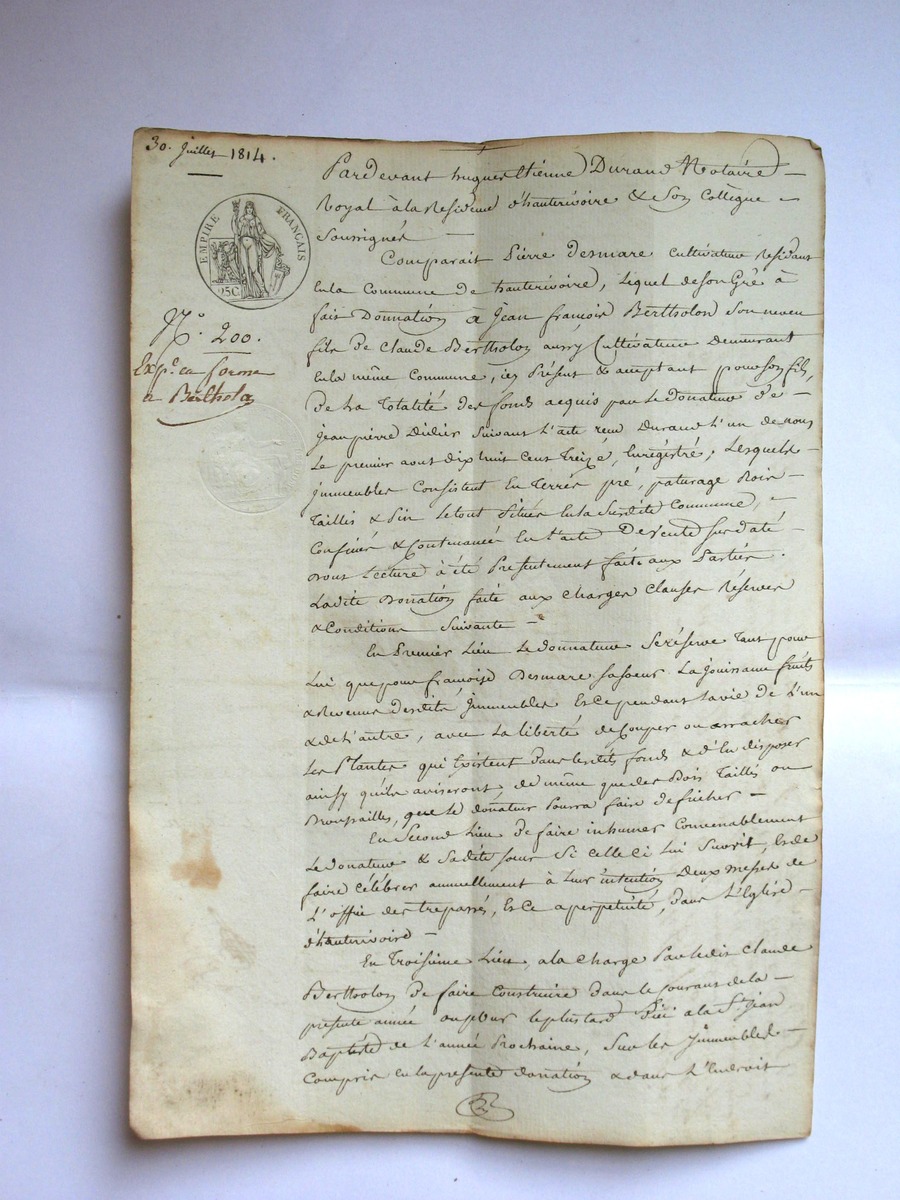 30. juillet 1814.
EMPIRE FRANÇAIS
25C
N.° 200.
Exp.on en forme
a Bertholon
Pardevant hugues Etienne Durand Notaire
Royal à la Residence d'hauterivoire & Son Collègue
Soussignés
Comparait Pierre Desmare Cultivateur Residant
En la Commune de hauterivoire, liquel de son Gré à
fait Donnation a Jean françois Bertholon Son neveu
fils de Claude Bertholon aussy Cultivateur Demeurant
En la même Commune, icy Présent & acceptant pour son fils,
De La Totalité des fonds acquis par le Donnateur de
Jean pierre Didier Suivant L'acte recu Durand L'un de nous
Le premier aout dix huit Cent Treize, Enregistré; Lesquels
immeubles Consistent En Terres, pré, paturage Bois
Taillis & Pin Le tout Situés En la Susdite Commune,
Confinés & Contenancés En L'acte De vente Susdaté
Dont Lecture à été Présentement faite aux Parties.
Ladite Donnation faite aux Charges Clauses Réserves
& Conditions Suivante
En Premier Lieu Le Donnateur Se réserve Tant pour
Lui que pour françoise Desmare Sa soeur La jouissance fruits
& Revenus desdits Immeubles Et Ce pendant La vie de L'un
& de L'autre, avec La liberté de Couper ou arracher
Les Plantes qui Existent Dans lesdits fonds & d'En disposer
ainsy qu'ils aviseront, de même que des Bois Taillis ou
Broussailles, que Le donateur Pourra faire defricher
En Second Lieu De faire inhumer Convenablement
Le donateur & Sadite soeur Si celle Ci Lui Survit, Et de
faire Célébrer annuellement à Leur intention Deux messes de
L'office des trepassés, Et Ce a perpetuité, Dans L'Eglise
d'hauterivoire
En Troisieme Lieu, a la Charge Par ledit Claude
Bertholon De faire Construire Dans le Courant de la
présente année ou pour le plus tard D'ici a la St. Jean
Baptiste de L'année Prochaine, Sur les Immeubles
Compris En la presente donation & dans L'Endroit